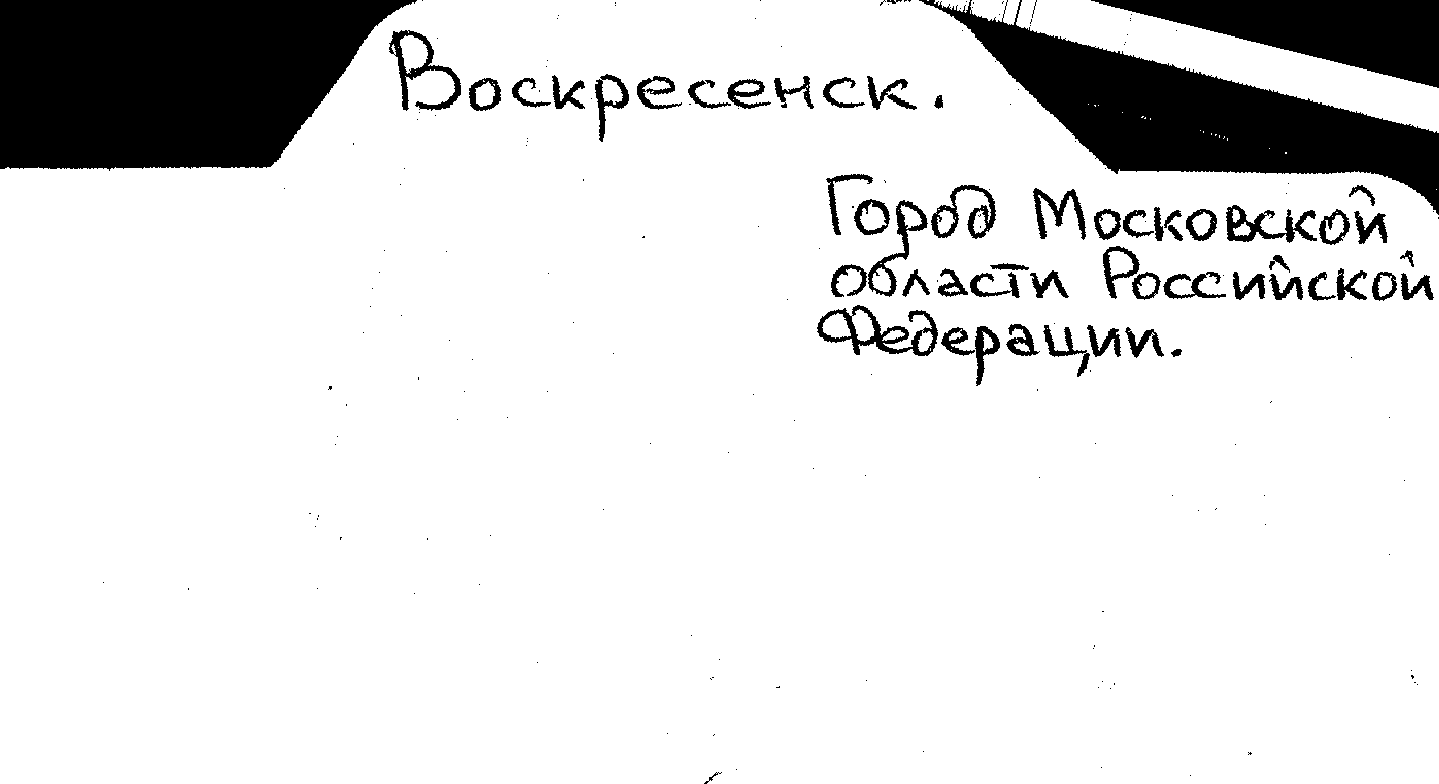 Воскресенск.
Город Московской
области Российской
Федерации.